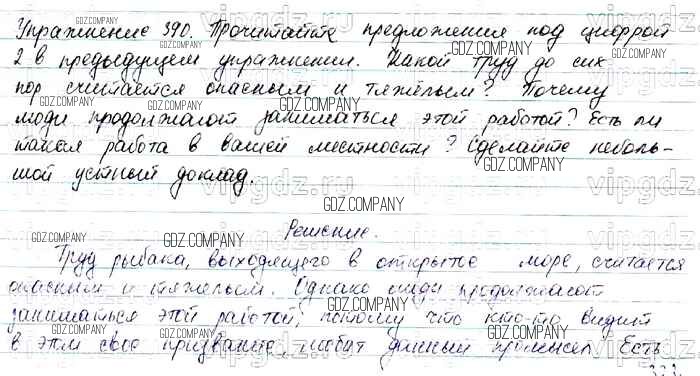 Упражнение 390. Прочитайте предложения под цифрой
2 в предыдущем упражнении. Какой труд до сих
пор считается опасным и тяжёлым? Почему
люди продолжают заниматься этой работой? Есть ли
такая работа в вашей местности? Сделайте неболь-
шой устный доклад.
Решение.
Труд рыбака, выходящего в открытое море, считается
опасным и тяжелым. Однако люди продолжают
заниматься этой работой, потому что кто-то видит
в этом свое призвание, любит данный промысел. Есть